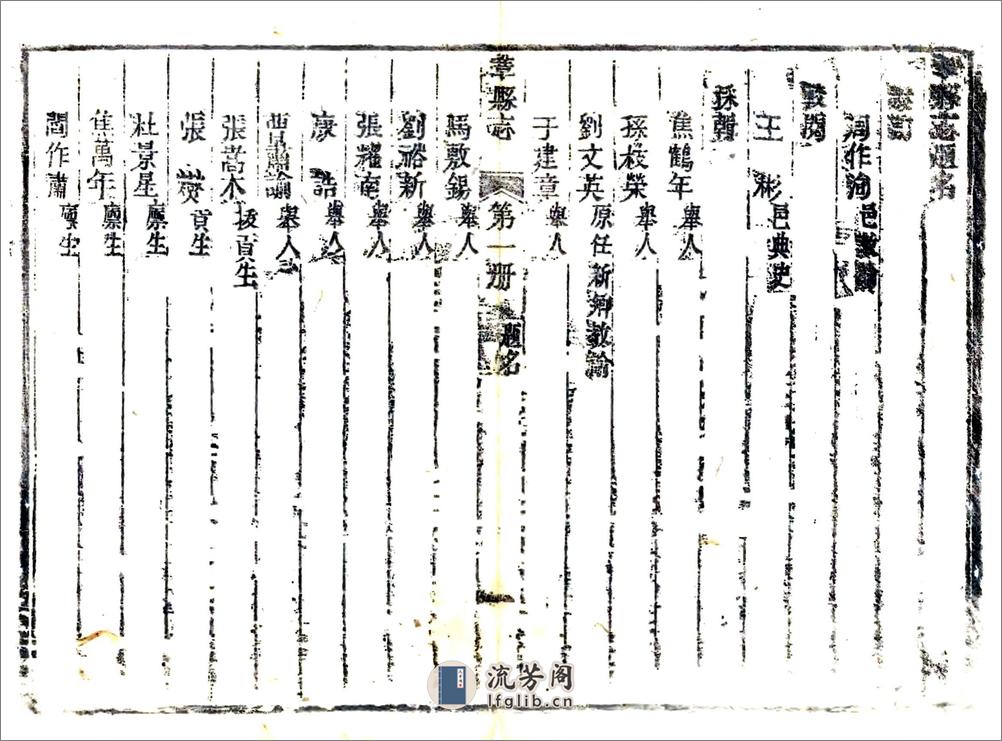 縣志題名
周作洵 邑教諭
校閱
王彬 邑典史
採輯
焦鶴年 舉人
孫枝榮 舉人
劉文英 原任新鄉教諭
于建章 舉人
縣志 第一册 題名 一
馬敷錫 舉人
劉裕新 舉人
張耀南 舉人
康誥 舉人
諭 舉人
張嵩木 拔貢生
張 貢生
杜景星 廩生
焦萬年 廩生
閻作肅 廩生
流芳阁
lfglib.cn